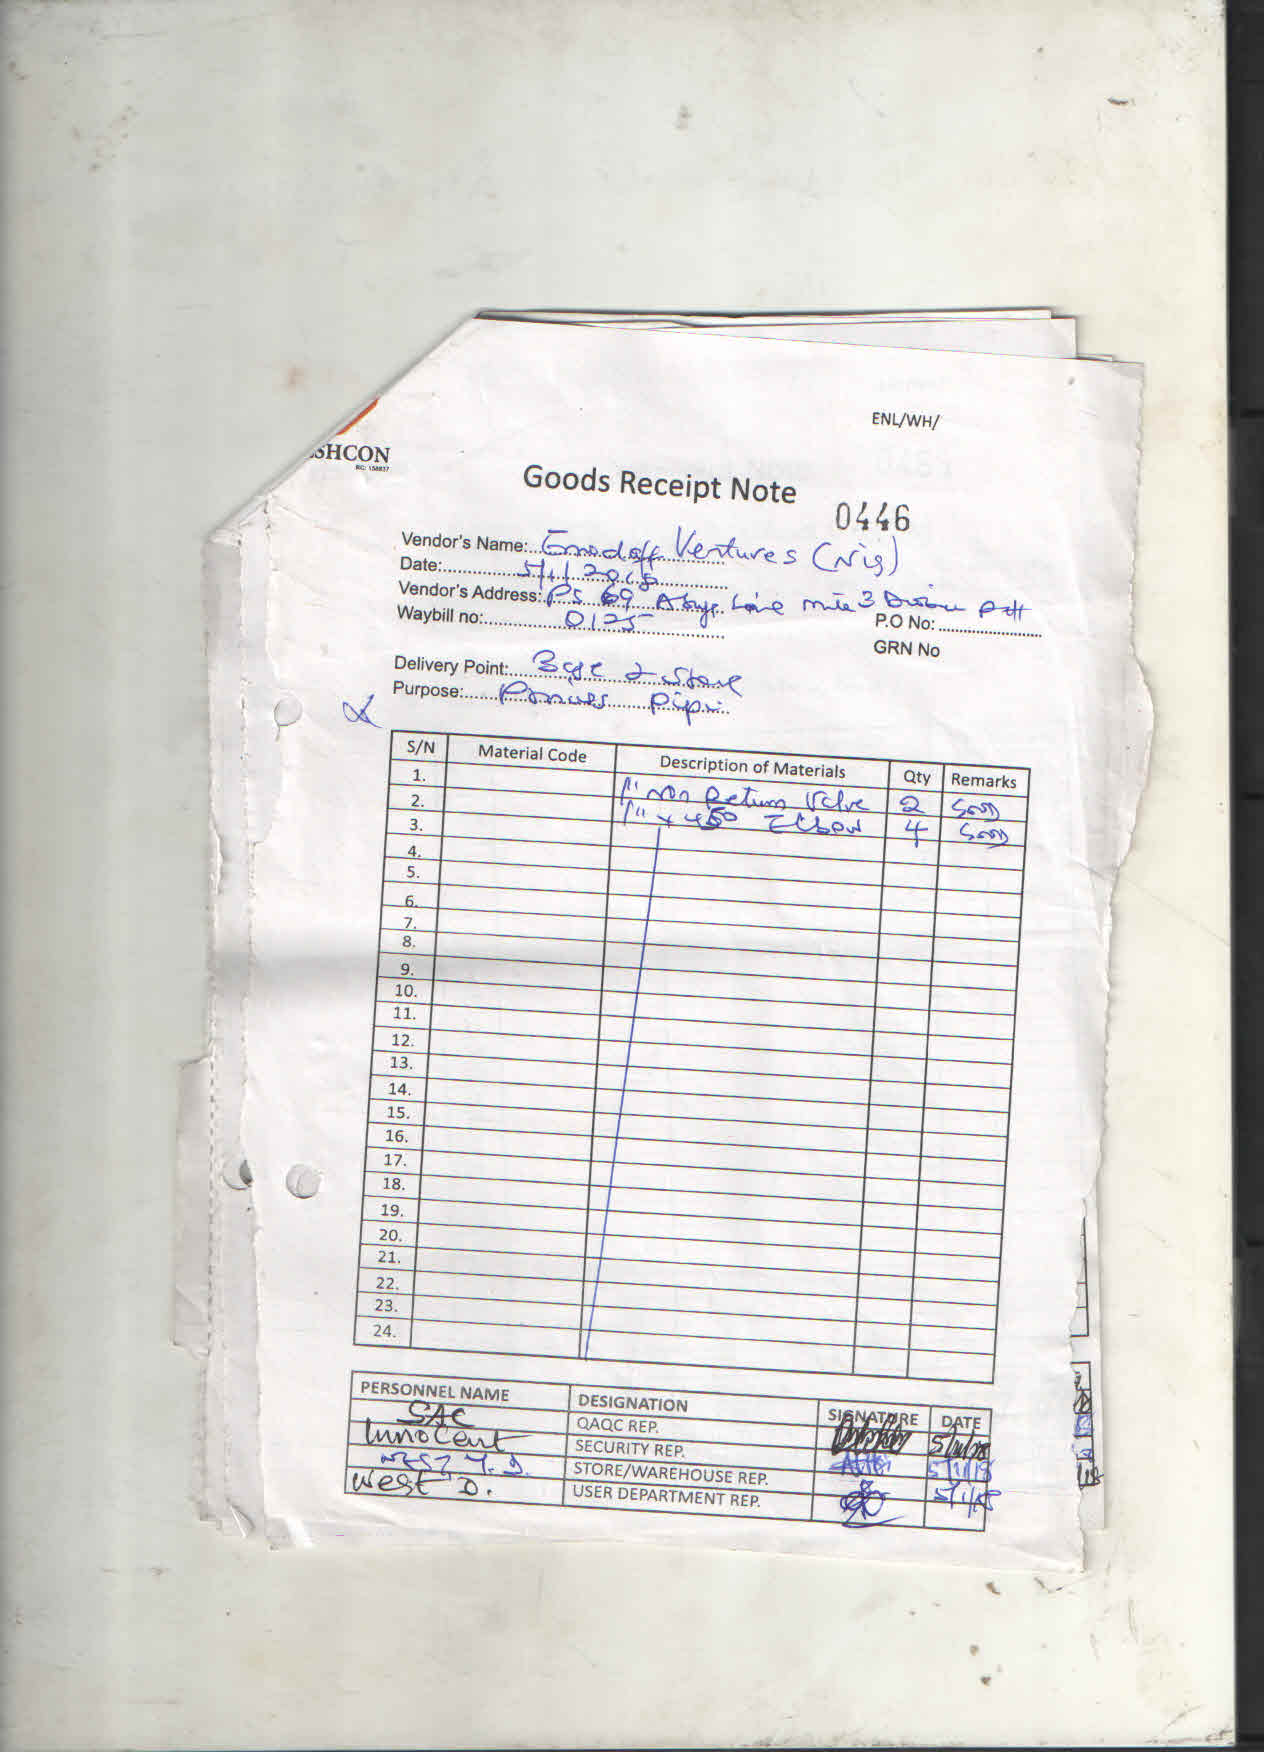 ENL/WH/
SHCON
RC: 158837
Goods Receipt Note
0446
Vendor's Name: Ventures (Nig)
Date: 5/1/2018
Vendor's Address: 69 Line mile 3 PH
Waybill no: 0125
P.O No:
GRN No
Delivery Point: Base 2 Store
Purpose:
S/N Material Code Description of Materials Qty Remarks
1. 1" Non Return Valve 2 Good
2. 1" x 45° Elbow 4 Good
3.
4.
5.
6.
7.
8.
9.
10.
11.
12.
13.
14.
15.
16.
17.
18.
19.
20.
21.
22.
23.
24.
PERSONNEL NAME DESIGNATION SIGNATURE DATE
SAC QAQC REP.
Innocent SECURITY REP. 5/1/18
WEST STORE/WAREHOUSE REP. 5/1/18
West D. USER DEPARTMENT REP. 5/1/18